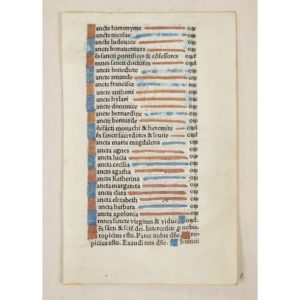 ancte hieronyme or
ancte nicolae or
ancte ludouice or
ancte bonauentura or
es sancti pontifices & cōfessores
mnes sancti doctores or
ancte benedicte or
ancte amande or
ancte francisce or
ancte anthoni or
ancte hylari or
ancte dominice or
ancte bernardine or
ancte bernarde or
es scti monachi & heremite
es sancti sacerdotes & leuite or
ancta maria magdalena or
ancta agnes or
ancta lucia or
ancta cecilia or
ancta agatha or
ancta Katherina or
ancta margareta or
ancta clara or
ancta elizabeth or
ancta barbara or
ancta apolonia or
mnes sancte virgines & vidue
es sctī & sctē dei. Intercedite nobis
ropicius esto. Parce nobis dñe. ro
picius esto. Exaudi nos dñe. b omni